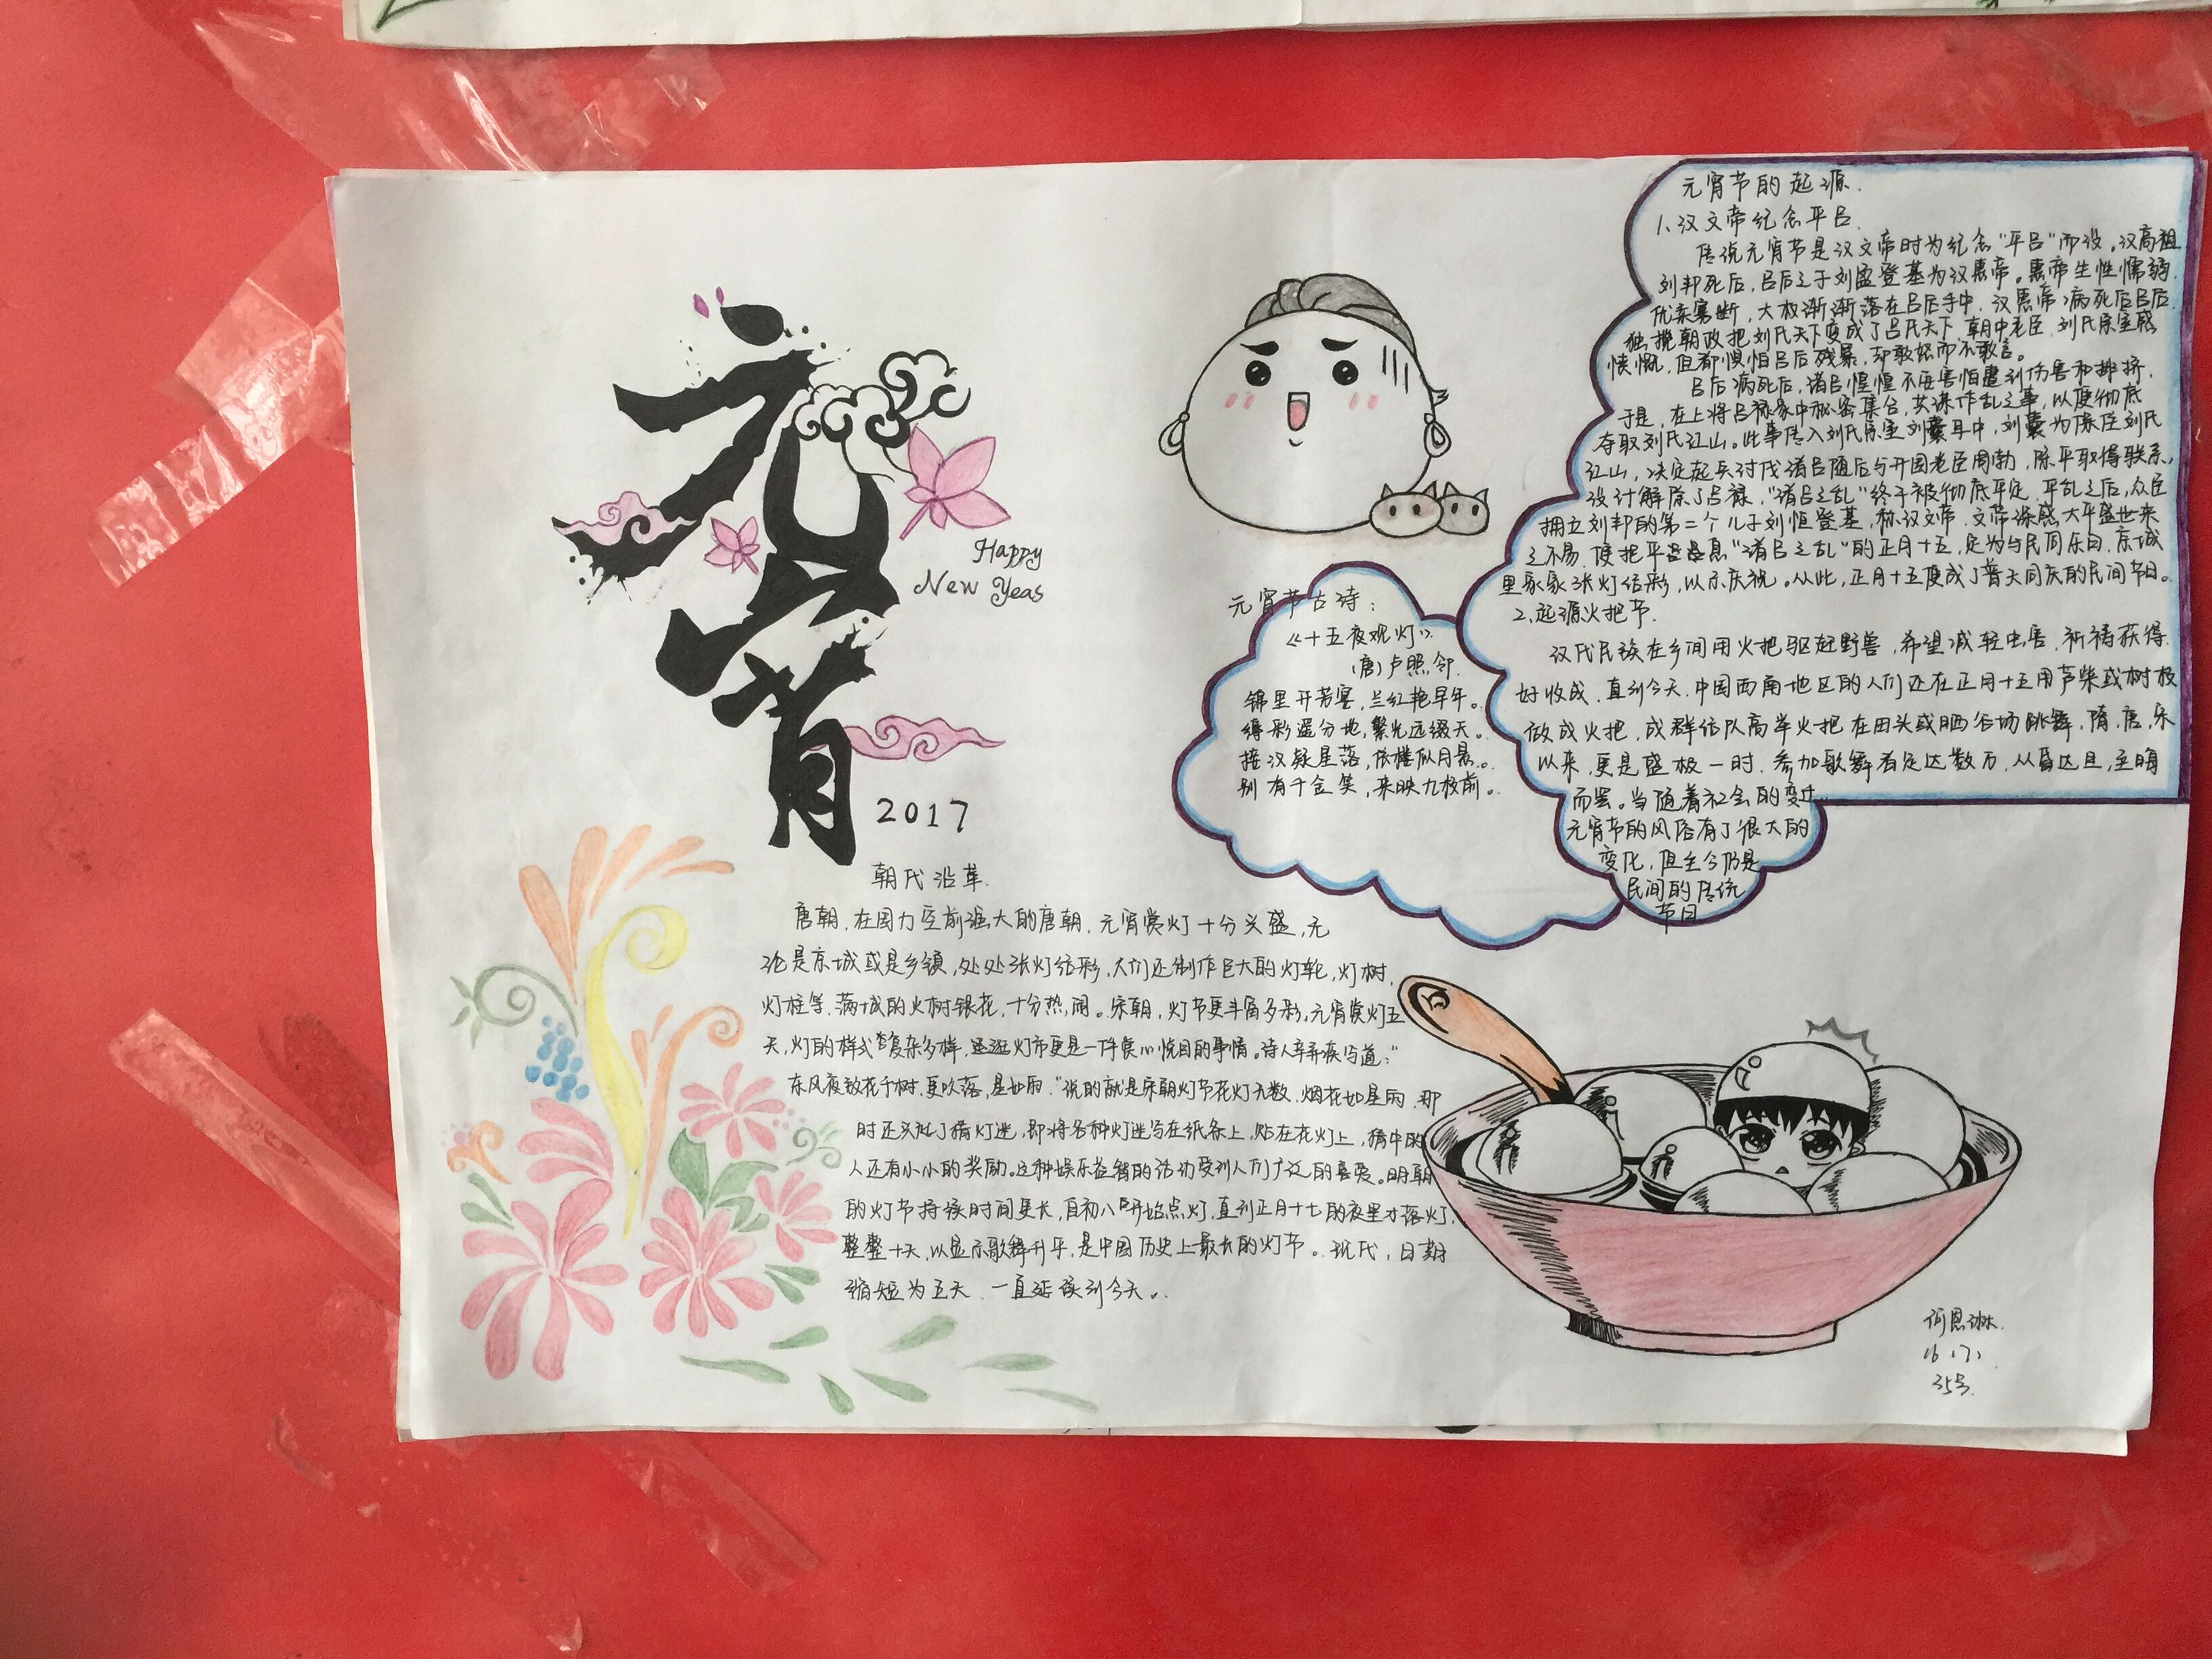 元宵
Happy
New Yeas
2017
朝代沿革.
唐朝,在国力空前强大的唐朝,元宵赏灯十分兴盛,无
论是京城或是乡镇,处处张灯结彩,人们还制作巨大的灯轮,灯树,
灯柱等,满城的火树银花,十分热闹。宋朝,灯节更丰富多彩,元宵赏灯五
天,灯的样式繁复杂多样,逛灯市更是一件赏心悦目的事情。诗人辛弃疾写道:"
东风夜放花千树,更吹落,星如雨."说的就是宋朝灯节花灯无数,烟花如星雨,那
时还兴起了猜灯迷,即将各种灯迷写在纸条上,贴在花灯上,猜中的
人还有小小的奖励。这种娱乐益智的活动受到人们广泛的喜爱。明朝
的灯节持续时间更长,自初八开始点灯,直到正月十七的夜里才落灯,
整整十天,以显示歌舞升平,是中国历史上最长的灯节。现代,日期
缩短为五天,一直延续到今天。
元宵节古诗:
《十五夜观灯》
(唐)卢照邻.
锦里开芳宴,兰红艳早年。
缛彩遥分地,繁光远缀天。
接汉疑星落,依楼似月悬。
别有千金笑,来映九枝前。
元宵节的起源.
1、汉文帝纪念平吕.
传说元宵节是汉文帝时为纪念"平吕"而设。汉高祖
刘邦死后,吕后之子刘盈登基为汉惠帝。惠帝生性懦弱,
优柔寡断,大权渐渐落在吕后手中.汉惠帝病死后吕后
独揽朝政把刘氏天下变成了吕氏天下,朝中老臣,刘氏宗室感
愤慨,但都惧怕吕后残暴,却敢怒而不敢言。
吕后病死后,诸吕惶惶不安害怕遭到伤害和排挤,
于是,在上将吕禄家中秘密集合,共谋作乱之事,以便彻底
夺取刘氏江山。此事传入刘氏宗室刘囊耳中,刘囊为保住刘氏
江山,决定起兵讨伐诸吕随后与开国老臣周勃,陈平取得联系,
设计解除了吕禄,"诸吕之乱"终于被彻底平定.平乱之后,众臣
拥立刘邦的第二个儿子刘恒登基,称汉文帝.文帝深感太平盛世来
之不易,便把平息"诸吕之乱"的正月十五,定为与民同乐日,京城
里家家张灯结彩,以示庆祝。从此,正月十五便成了普天同庆的民间节日。
2、起源火把节.
汉代民族在乡间用火把驱赶野兽,希望减轻虫害,祈祷获得
好收成.直到今天,中国西南地区的人们还在正月十五用芦柴或树枝
做成火把,成群结队高举火把在田头或晒谷场跳舞.隋,唐,宋
以来,更是盛极一时.参加歌舞者足达数万,从昏达旦,至晦
而罢。当随着社会的变迁,
元宵节的风俗有了很大的
变化,但至今仍是
民间的传统
节日
何恩琳.
35号